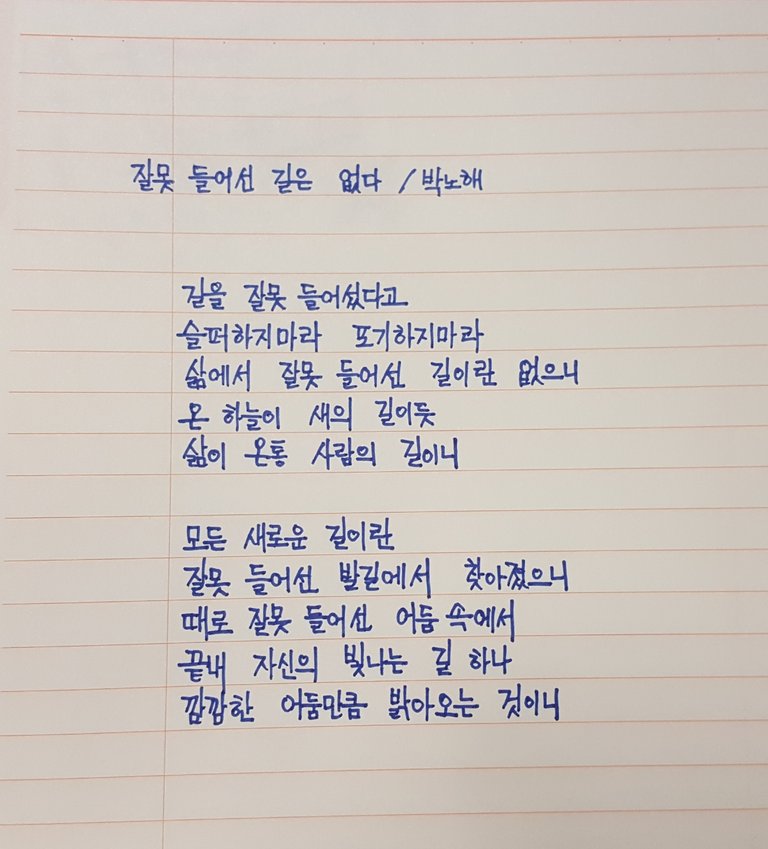 잘못 들어선 길은 없다 / 박노해
길을 잘못 들어섰다고
슬퍼하지마라 포기하지마라
삶에서 잘못 들어선 길이란 없으니
온 하늘이 새의 길이듯
삶이 온통 사람의 길이니
모든 새로운 길이란
잘못 들어선 발길에서 찾아졌으니
때로 잘못 들어선 어둠 속에서
끝내 자신의 빛나는 길 하나
깜깜한 어둠만큼 밝아오는 것이니